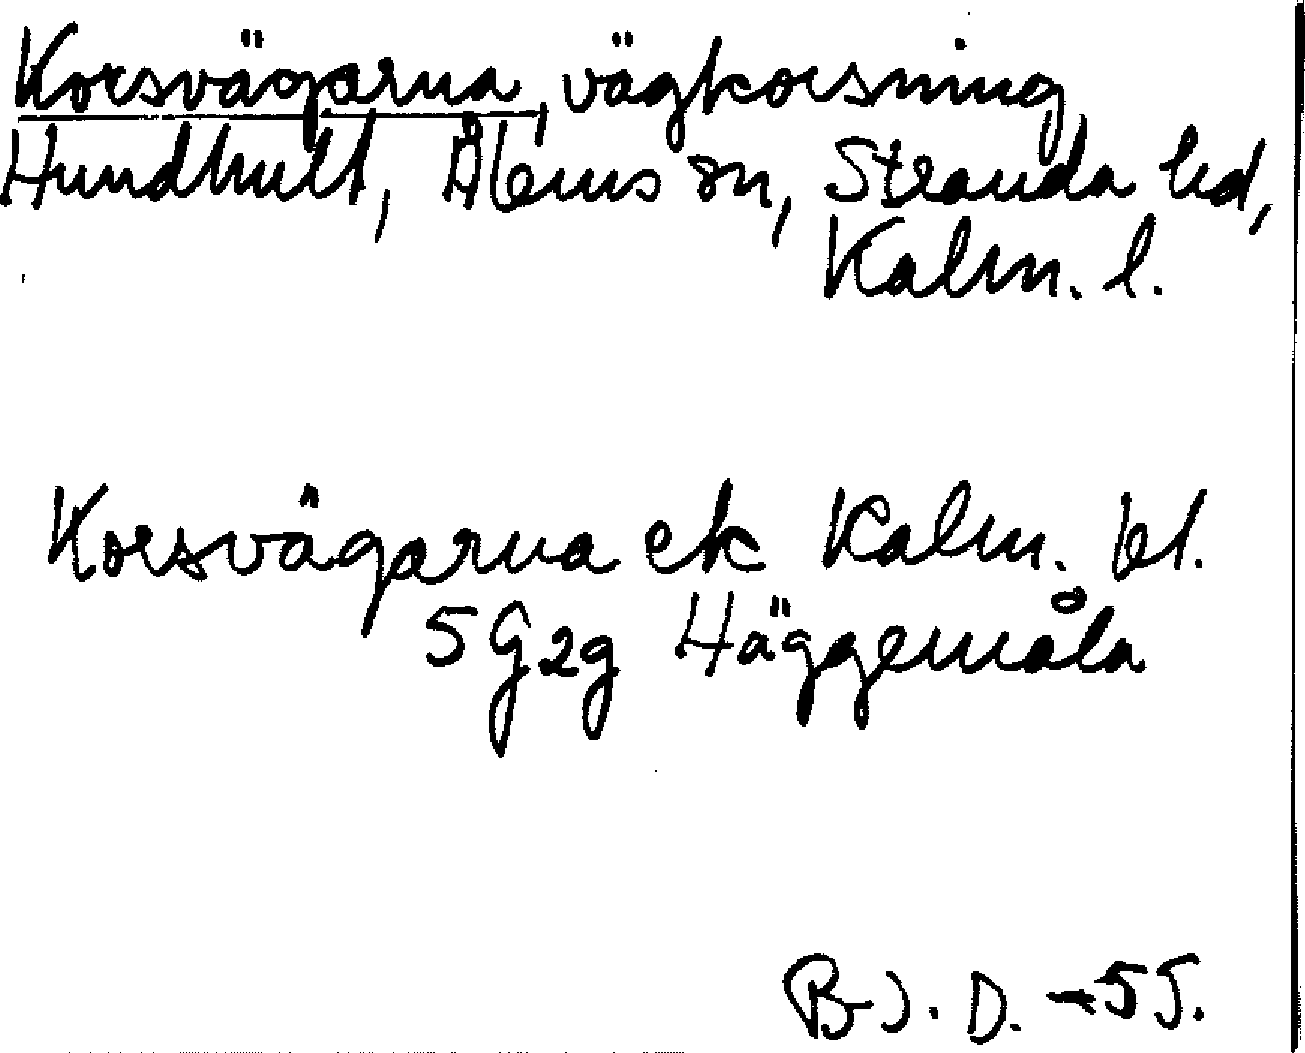 Korsvägarna, vägkorsning
Hundhult, Ålems sn, Stranda hd,
Kalm. l.
Korsvägarna ek Kalm. bl.
5 G 2g Häggemåla
B. J. D. -55.